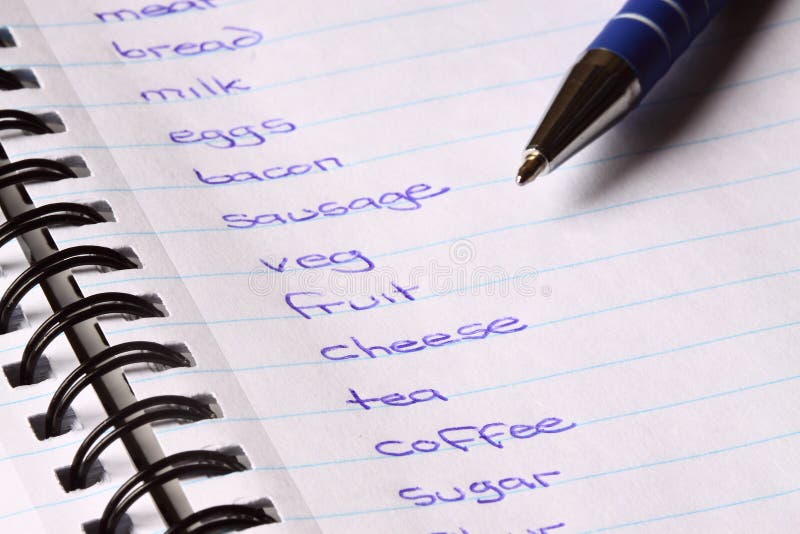 meat
bread
milk
eggs
bacon
sausage
veg
fruit
cheese
tea
coffee
sugar